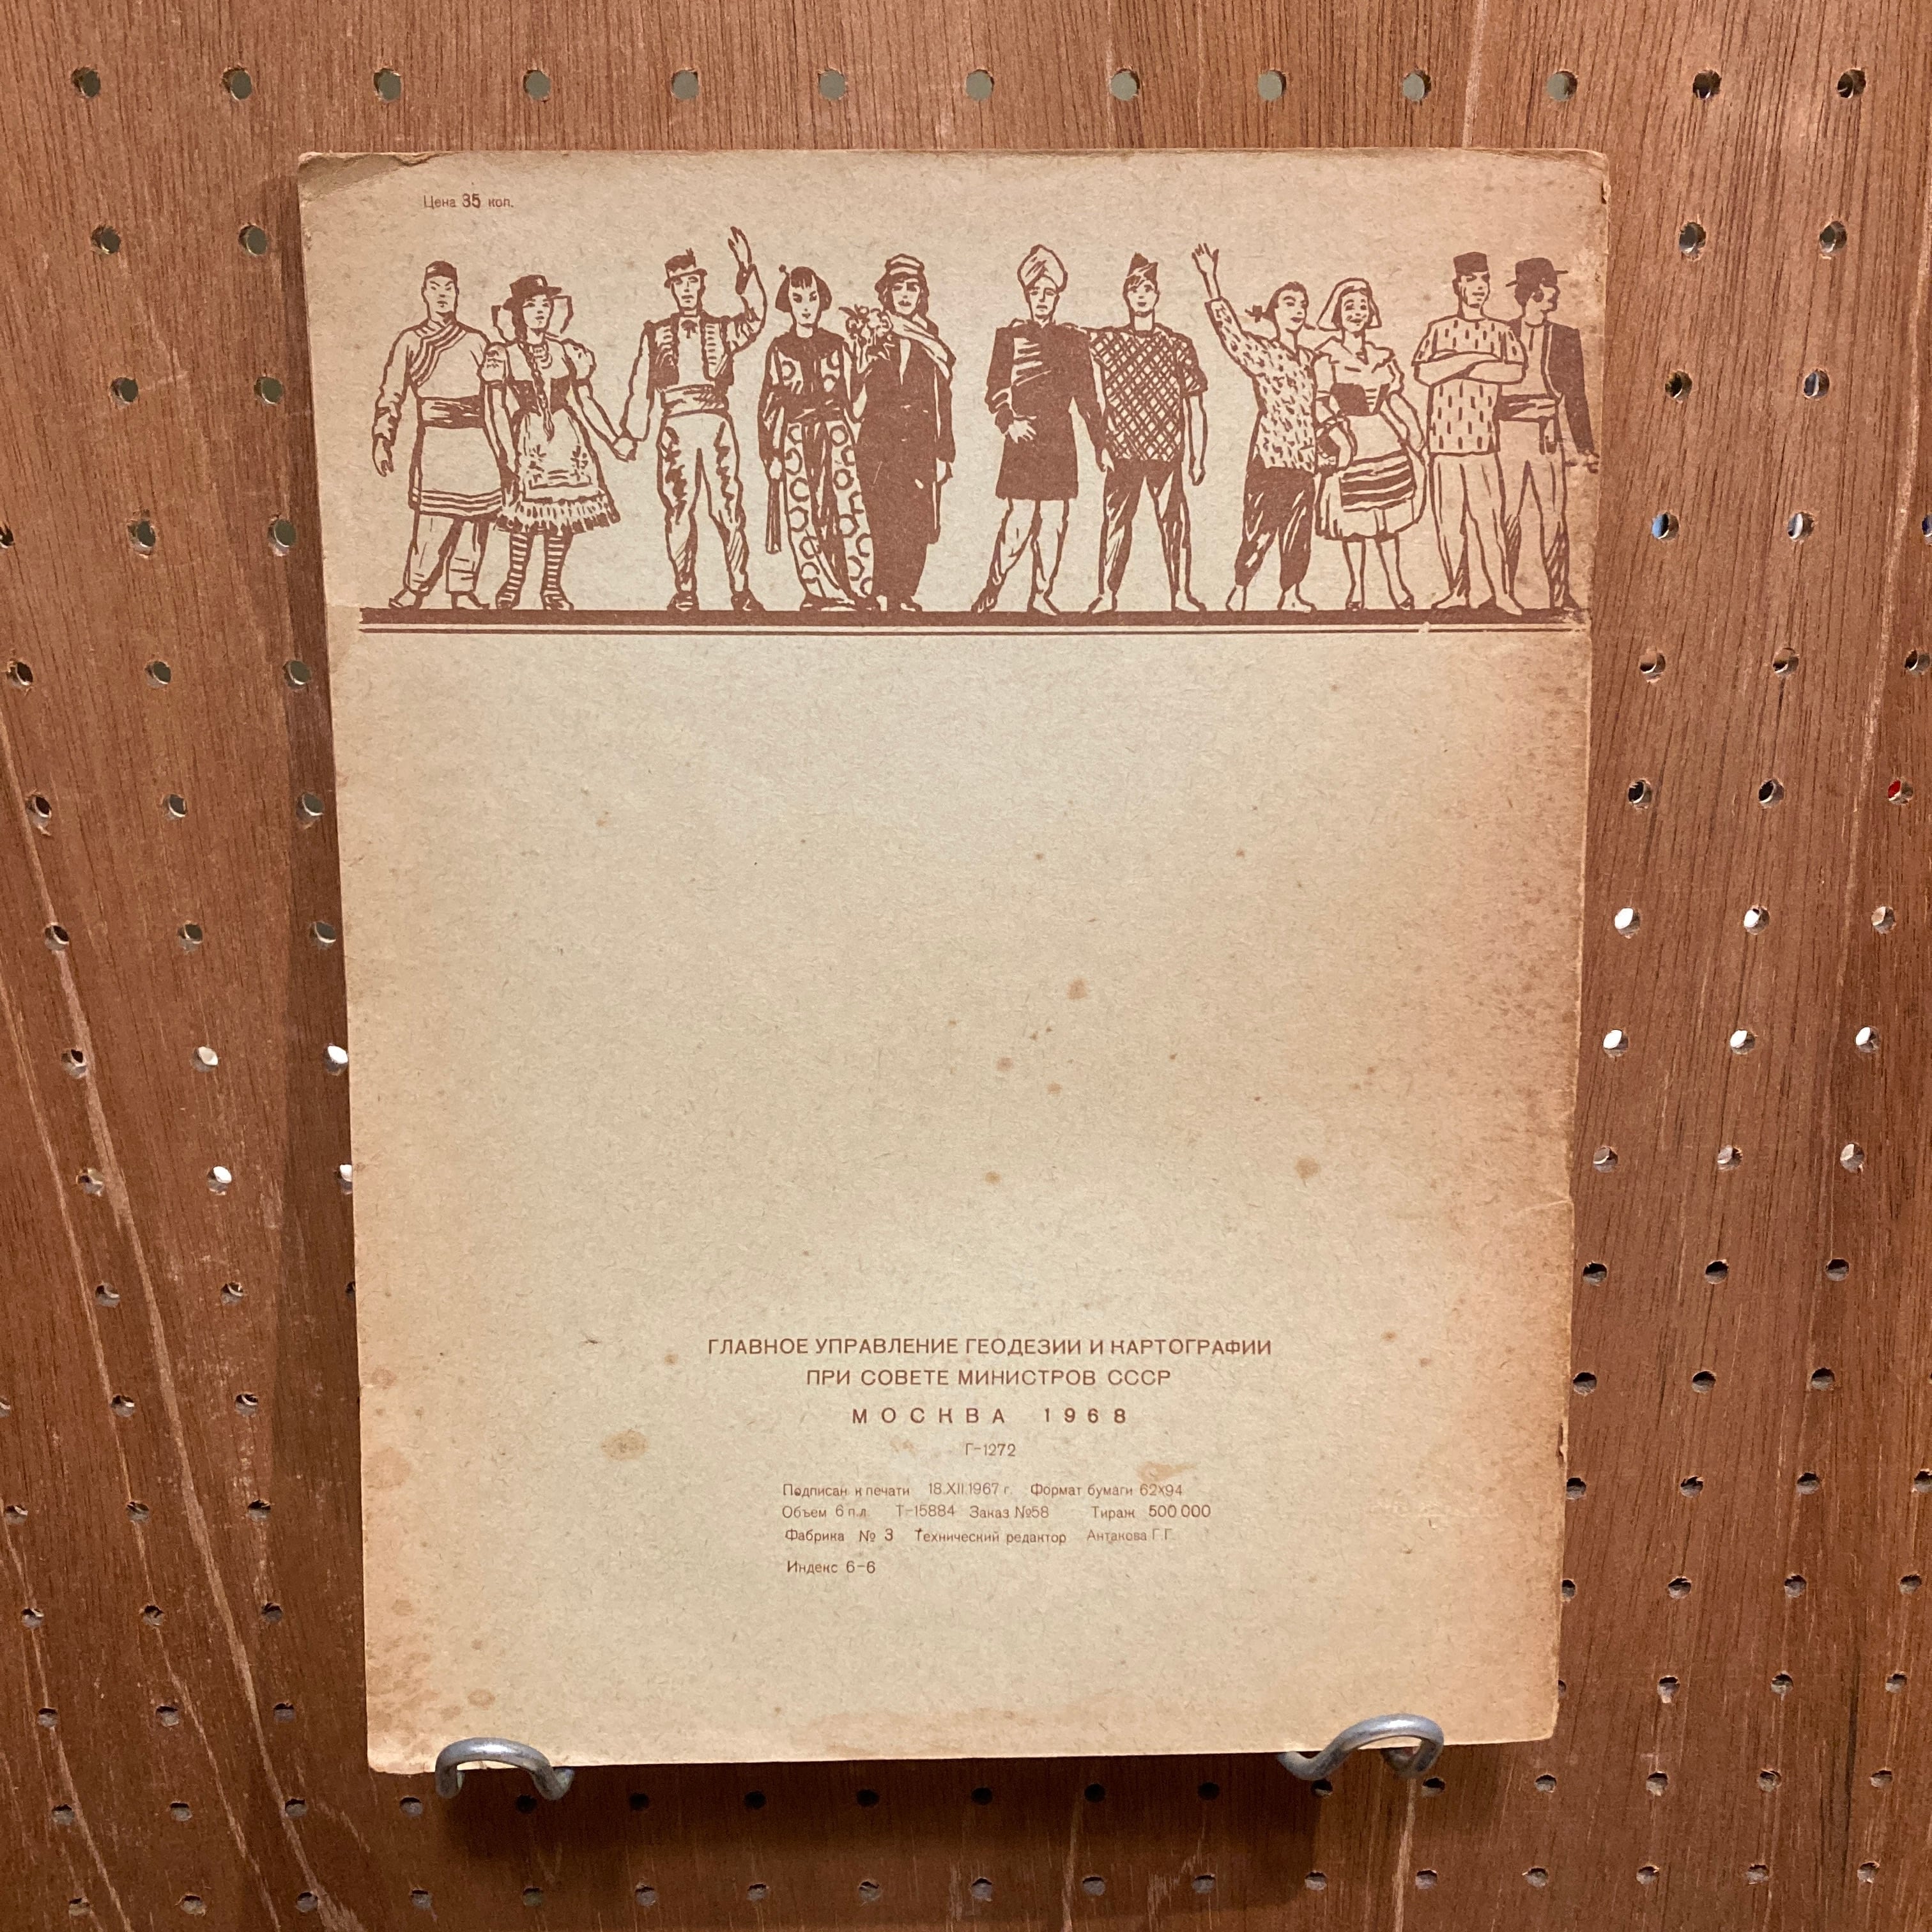 Цена 35 коп.
ГЛАВНОЕ УПРАВЛЕНИЕ ГЕОДЕЗИИ И КАРТОГРАФИИ
ПРИ СОВЕТЕ МИНИСТРОВ СССР
МОСКВА 1968
Г-1272
Подписан к печати 18.XII.1967 г. Формат бумаги 62х94
Объем 6 п.л. Т-15884 Заказ №58 Тираж 500 000
Фабрика № 3 Технический редактор Антакова Г.Г.
Индекс 6-6